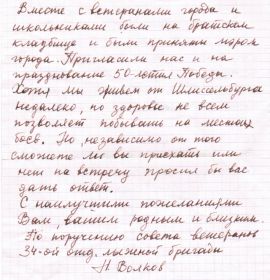 Вместе с ветеранами города и
школьниками были на братском
кладбище и были приняты мэром
города. Пригласили нас и на
празднование 50-летия Победы.
Хотя мы живем от Шлиссельбурга
недалеко, но здоровье не всем
позволяет побывать на местных
боев. Но, независимо от того
сможете ли вы приехать или
нет на встречу просил бы вас
дать ответ.
С наилучшими пожеланиями
Вам, вашим родным и близким.
По поручению совета ветеранов
34-ой отд. лыжной бригады
Н Волков